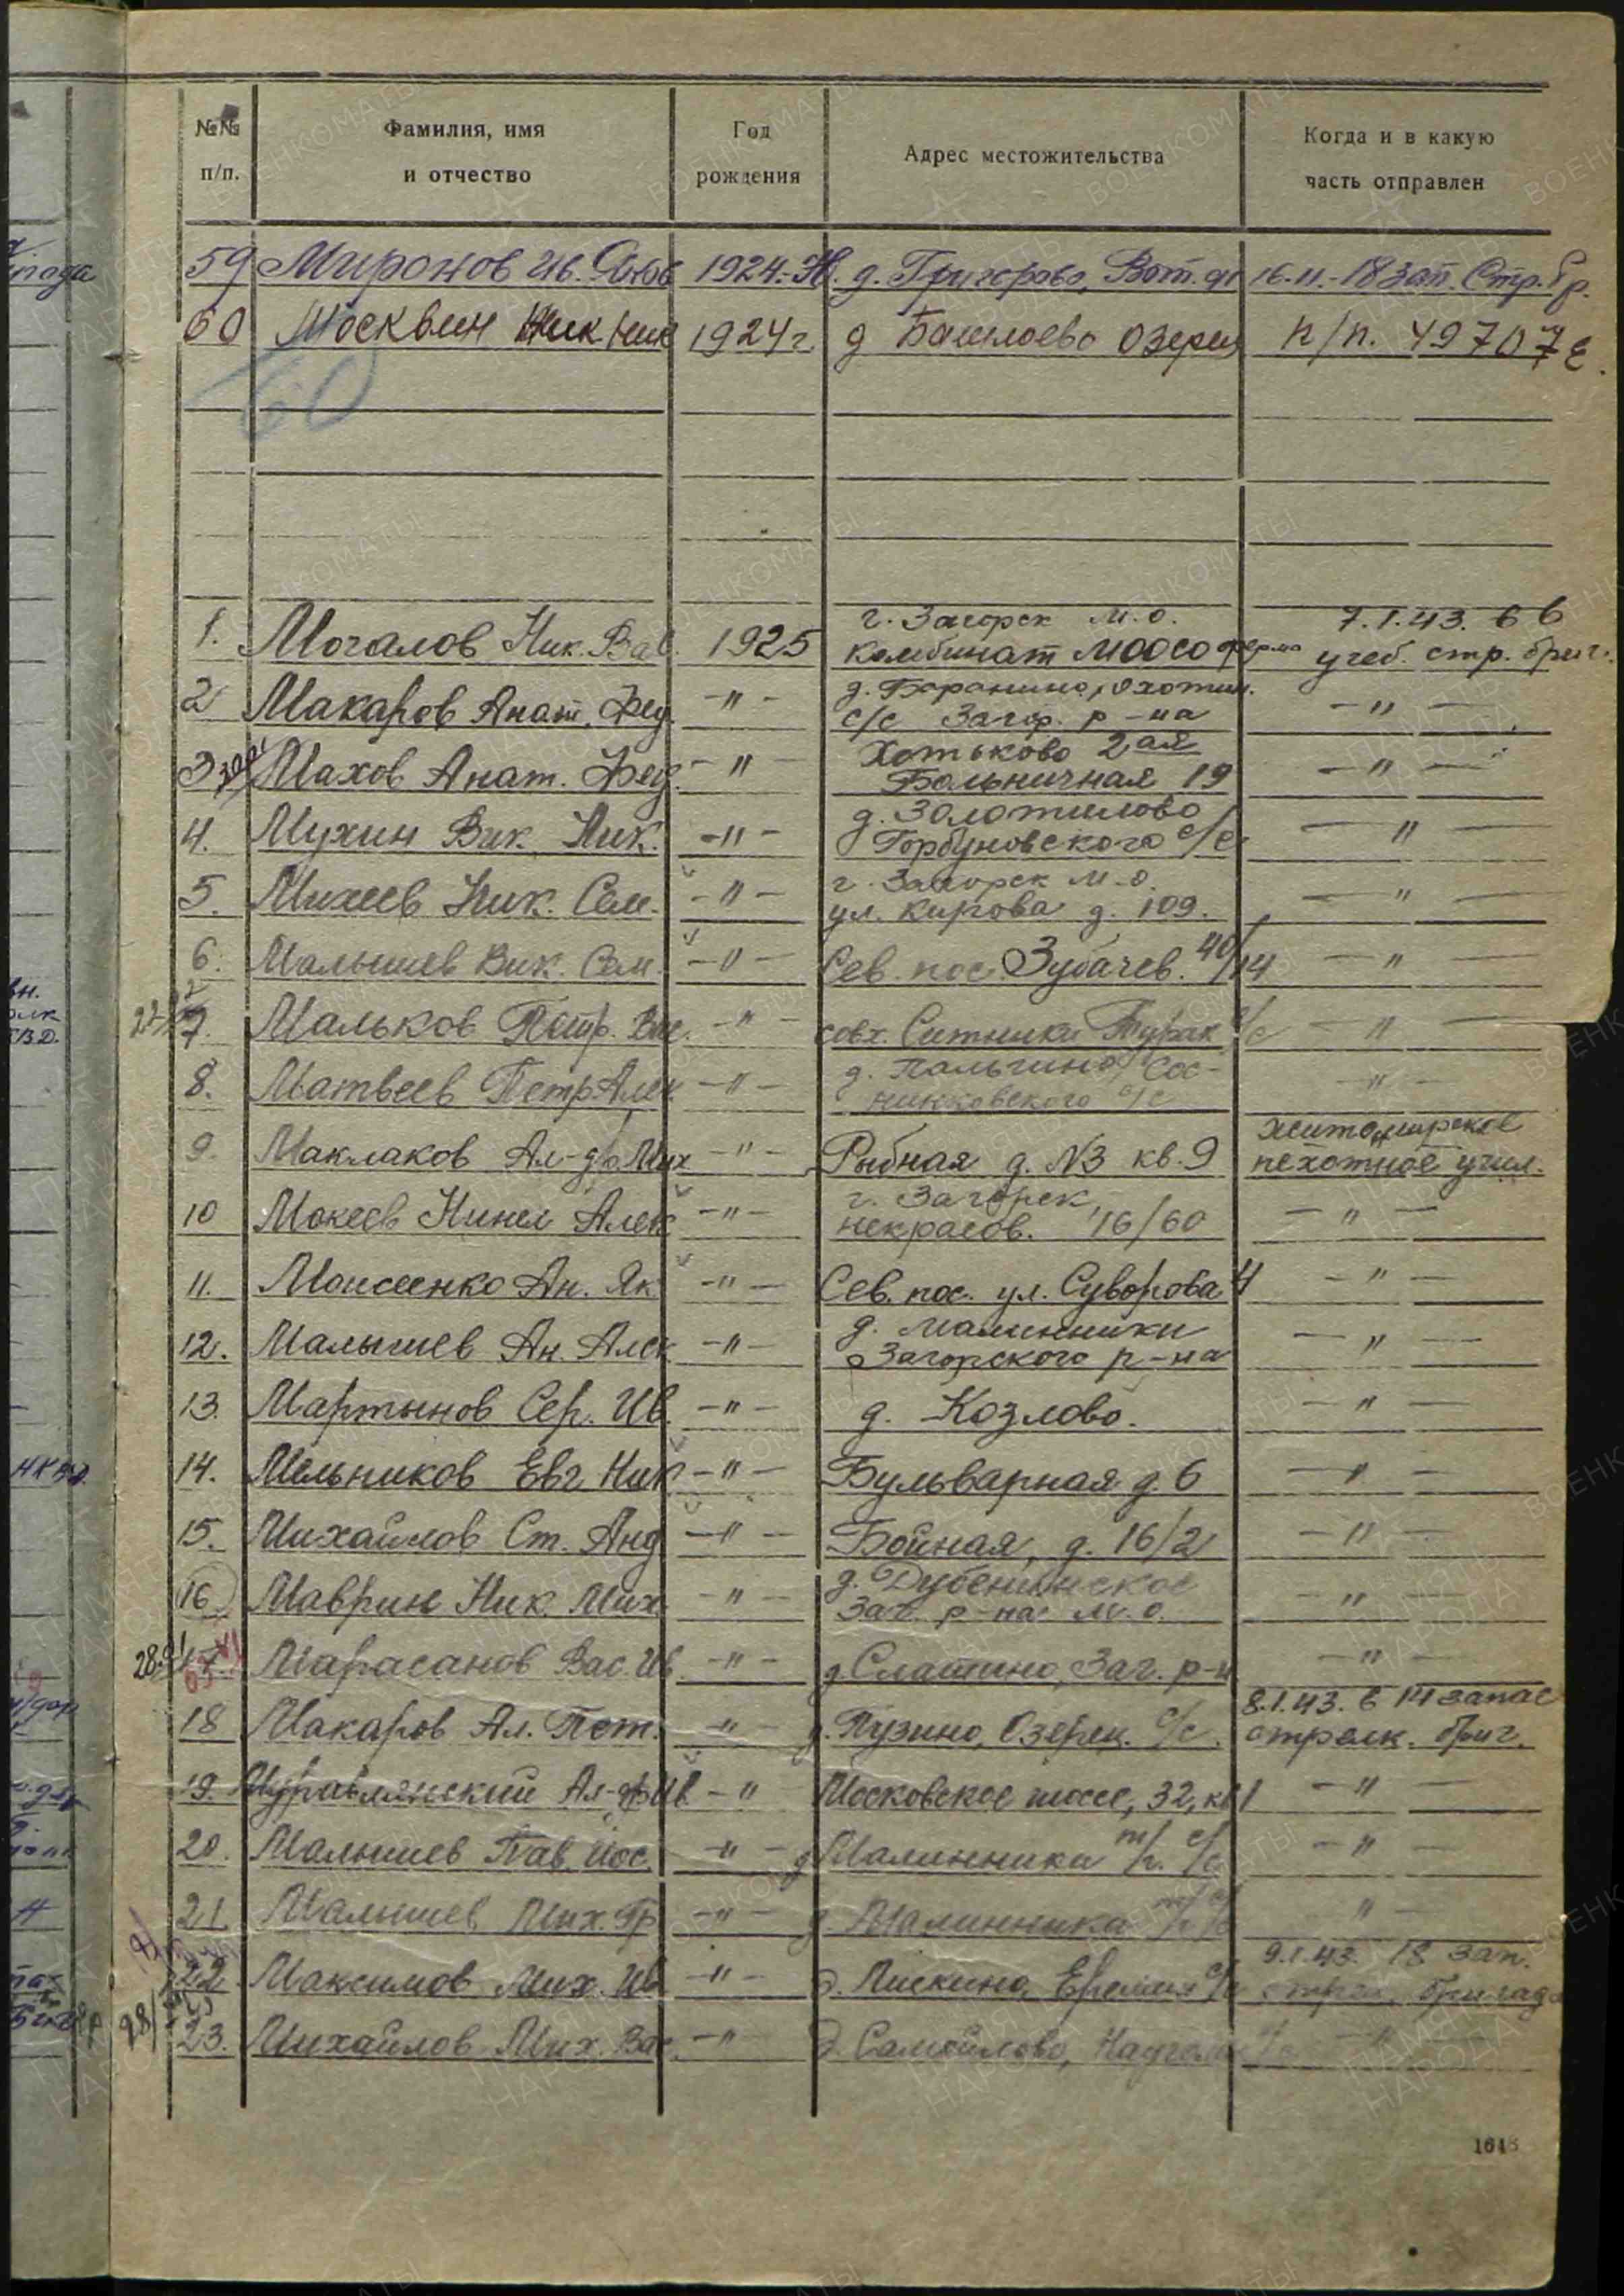 №№ п/п. Фамилия, имя и отчество Год рождения Адрес местожительства Когда и в какую часть отправлен
59 Миронов Ив. 1924. д. Григорово, 16.11.-18 зап. Стр. бр.
60 Москвин Ник. Ник 1924 г. д п/п. 49707
60
1. Мочалов Ник. Вас. 1925 г. Загорск М.О. комбинат 7.1.43. в 6 учеб. стр. бриг.
2 Макаров Анат. Фед. -"- д. Баранино, с/с Загор. р-на -"-
3 Махов Анат. Фед. -"- Хотьково 2ая Больничная 19 -"-
4. Мухин Вик. Ник. -"- д. Золотилово Горбуновского с/с -"-
5. Михеев Ник. Сем. -"- г. Загорск М.О. ул. Кирова д. 109. -"-
6. Малышев Вик. Сем. -"- Сев. пос. Зубачев. 40/14 -"-
7. Мальков Петр. Вас. -"- совх. Ситники с/с -"-
8. Матвеев Петр Алек -"- д. Пальчино с/с -"-
9. Маклаков Ал-др Мих -"- Рыбная д. №3 кв. 9 Житомирское пехотное учил.
10 Мокеев Нинел Алек -"- г. Загорск, некрасов. 16/60 -"-
11. Моисеенко Ан. Як -"- Сев. пос. ул. Суворова 4 -"-
12. Малышев Ан. Алек. -"- д. Малинники Загорского р-на -"-
13. Мартынов Сер. Ив. -"- д. Козлово. -"-
14. Мельников Евг Ник -"- Бульварная д. 6 -"-
15. Михайлов Ст. Анд -"- Бойная, д. 16/2 -"-
16 Маврин Ник. Мих -"- д. Заг. р-на М.О. -"-
17. Марасанов Вас. Ив. -"- д. Слатино, Заг. р-н -"-
18 Макаров Ал. Пет. -"- д. Пузино, Озерец. с/с. 8.1.43. в запас стрелк. бриг.
19. Муравлянский Ал-др Ив. -"- Московское шоссе, 32, кв 1 -"-
20. Малышев Пав. Иос. -"- д. Малинники с/с -"-
21. Малышев Мих. Гр -"- д. Малинники -"-
22 Максимов Мих. Ив -"- д. Пискино, 9.1.43. 18 зап. стрел. бригада
23. Михайлов Мих. Вас. -"- д. Самойлово, -"-
1648